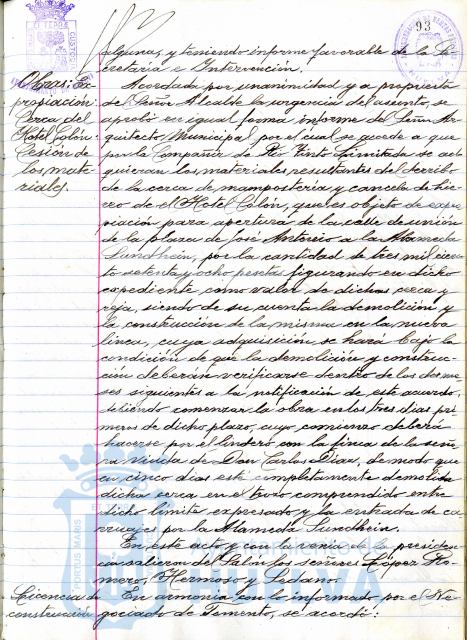 93
algunas, y teniendo informe favorable de la Se-
cretaria e Intervención.
Obras: Ex-
propiación
Cerca del
Hotel Colón
Cesión de
los mate-
riales.
Acordada por unanimidad y a propuesta
del Señor Alcalde la urgencia del asunto, se
aprobó en igual forma informe del Señor Ar-
quitecto Municipal por el cual se accede a que
por la Compañia de Rio Tinto Limitada se ad-
quieran los materiales resultantes del derribo
de la cerca de mamposteria y cancela de hie-
rro de el Hotel Colón, que es objeto de expro-
piación para apertura de la calle de unión
de la plaza de José Antonio a la Alameda
Sundhein, por la cantidad de tres mil cien-
to setenta y ocho pesetas figurando en dicho
expediente como valor de dichas cerca y
reja, siendo de su cuenta la demolición y
la construcción de la misma en la nueva
linea, cuya adquisición se hará bajo la
condición de que la demolición y construc-
ción deberán verificarse dentro de los dos me-
ses siguientes a la notificación de este acuerdo,
debiendo comenzar la obra en los tres dias pri-
meros de dicho plazo, cuyo comienzo deberá
hacerse por el lindero con la finca de la seño-
ra viuda de Don Carlos Diaz, de modo que
en cinco dias esté completamente demolida
dicha cerca en el trozo comprendido entre
dicho limite expresado y la entrada de ca-
rruajes por la Alameda Sundhein.
En este acto y con la venia de la presiden-
cia salieron del Salón los señores López Ro-
mero, Hermoso y Sedano.
Licencia de
construcción
En armonia con lo informado por el Ne-
gociado de Fomento, se acordó:
PORTUS MARIS
Ayuntamiento de
HUELVA